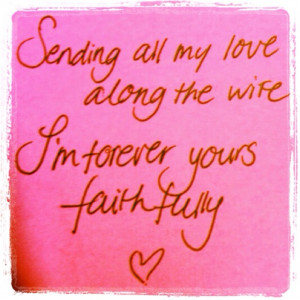 Sending all my love
along the wire
I'm forever yours
faithfully